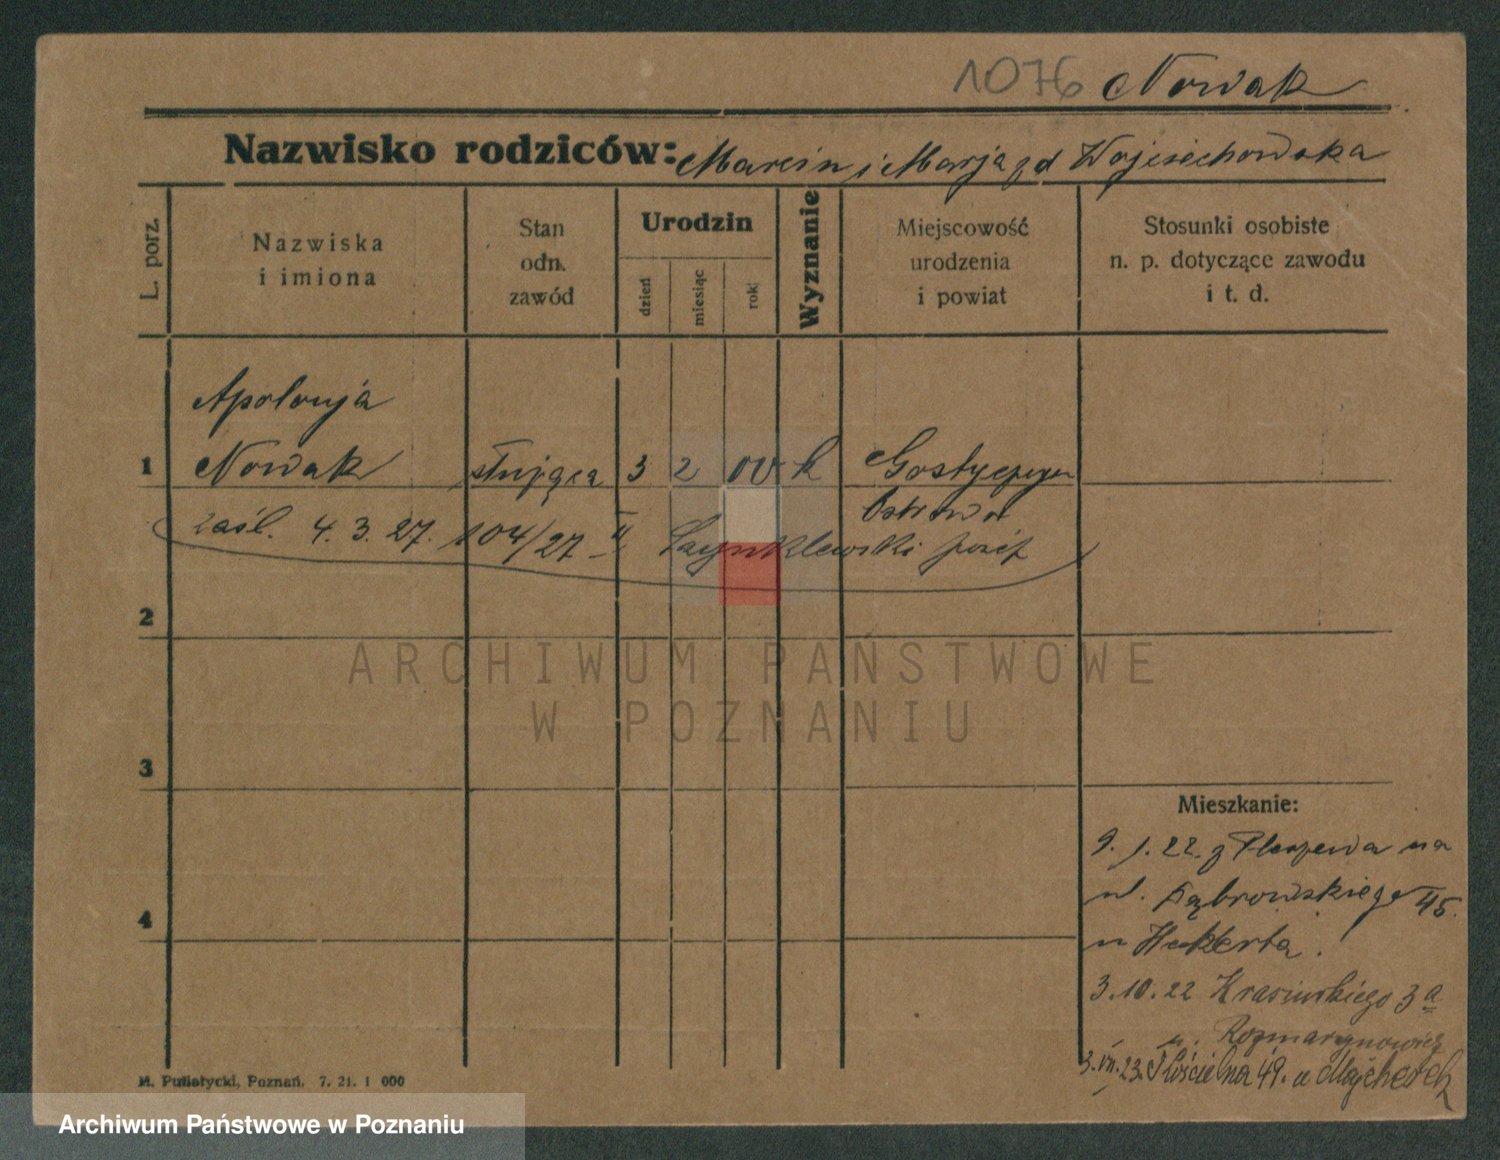 1076 Nowak
Nazwisko rodziców: Marcin i Marja zd Wojciechowska
L. porz.
Nazwiska
i imiona
Stan
odn.
zawód
Urodzin
dzień
miesiąc
rok
Wyznanie
Miejscowość
urodzenia
i powiat
Stosunki osobiste
n. p. dotyczące zawodu
i t. d.
Apolonja
1 Nowak służąca 3 2 k Gostyczyna
Ostrów
zaśl. 4. 3. 27. 104/27 II józef
2
ARCHIWUM PAŃSTWOWE
W POZNANIU
3
Mieszkanie:
9. 1. 22. z Pleszewa na
ul. Dąbrowskiego 45.
4
u
3.10.22 Krasińskiego 3a
u. Rozmarynowicz
3.VII.23. Kościelna 49. u
M. Putiatycki, Poznań. 7. 21. 1 000
Archiwum Państwowe w Poznaniu